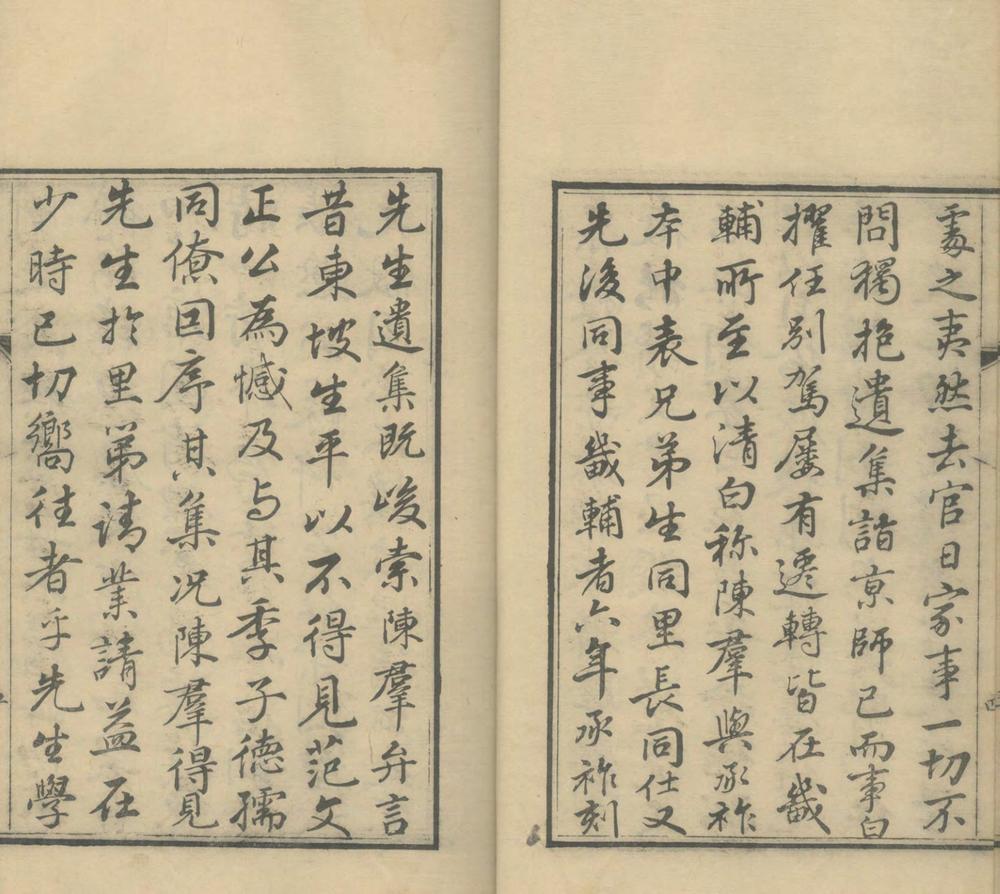 處之夷然去官日家事一切不
問獨抱遺集詣京師已而事白
擢任别駕屢有遷轉皆在畿
輔所至以清白称陳羣與承祚
本中表兄弟生同里長同仕又
先後同事畿輔者六年承祚刻
先生遺集既竣索陳羣弁言
昔東坡生平以不得見范文
正公為憾及与其季子德孺
同僚因序其集况陳羣得見
先生於里第請業請益在
少時已切嚮往者乎先生學